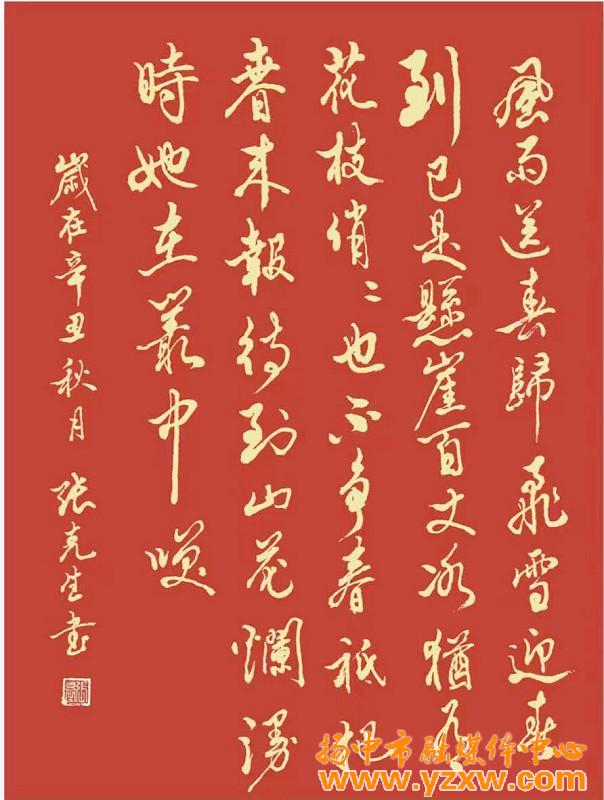 風雨送春歸飛雪迎春
到已是懸崖百丈冰猶有
花枝俏〻也不爭春祗把
春來報待到山花爛漫
時她在叢中笑
歲在辛丑秋月 張克生書
扬中市融媒体中心
www.yzxw.com